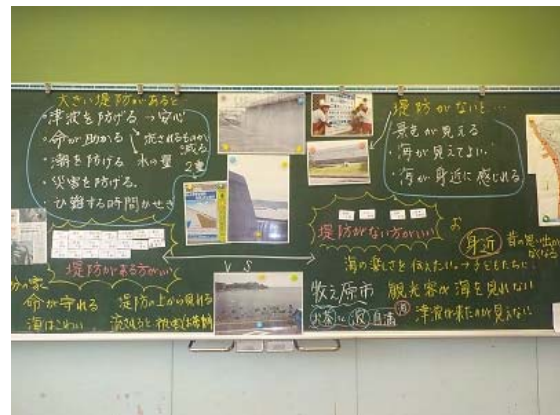 大きい堤防があると…
・津波を防げる → 安心
・命が助かる 流されるものが減る
・潮を防げる 水の量
・災害を防げる。
ひ難する時間かせぎ
2重
堤防がある方がいい
命が守れる
海はこわい
堤防の上から見れる
流されると
VS
堤防がないと…
・景色が見える
・海が見えてよい。
・海が身近に感じれる
堤防がない方がいい
身近
昔の思い出が
なくなる
海の楽しさを伝えたい。→子どもたちに
牧之原市
観光客が海を見れない
お茶
波
津波が来たのが見えない